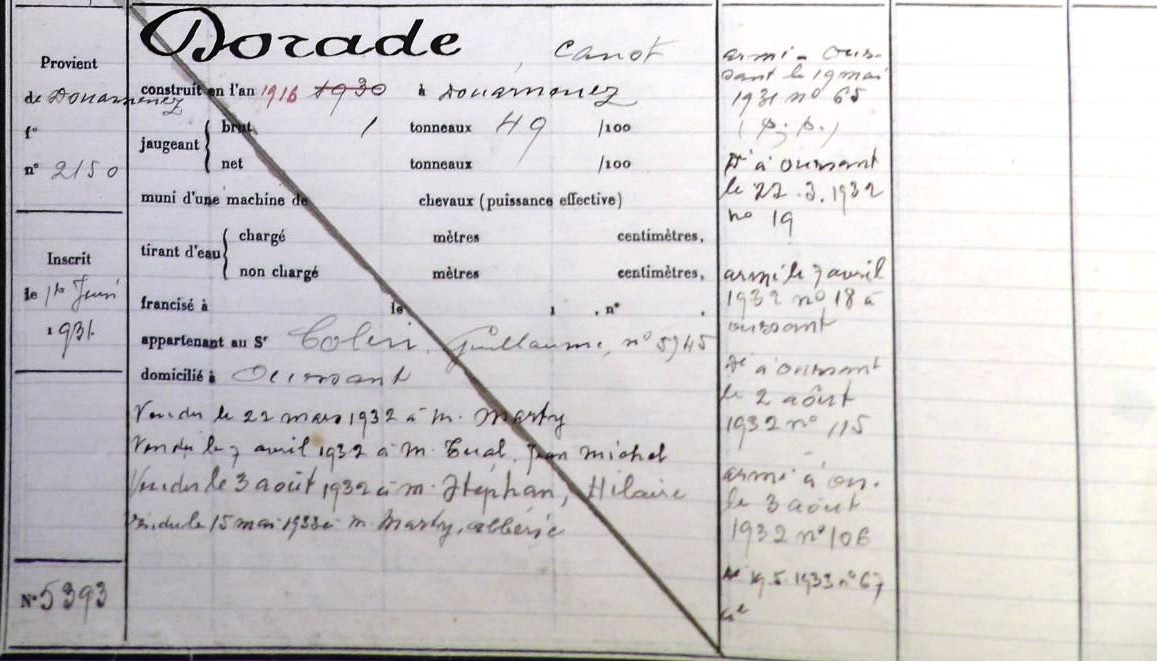 Provient
de Douarnenez
f°
n° 2150
Inscrit
le 1er Juin
1931
N° 5393
Dorade canot
construit en l'an 1916 1930 à Douarnenez
jaugeant { brut 1 tonneaux 49 /100
net tonneaux /100
muni d'une machine de chevaux (puissance effective)
tirant d'eau { chargé mètres centimètres,
non chargé mètres centimètres,
francisé à le 1 , n° .
appartenant au Sr Colin Guillaume, n° 5745
domicilié à Ouessant
Vendu le 22 mars 1932 à M. Marty
Vendu le 7 avril 1932 à M. Tual, Jean Michel
Vendu le 3 août 1932 à M. Stéphan, Hilaire
Vendu le 15 mai 1933 à M. Marty, Albéric
armé à Oues-
sant le 19 mai
1931 n° 65
(p. p.)
Dé à Ouessant
le 22.3.1932
n° 19
armé le 7 avril
1932 n° 18 à
Ouessant
Dé à Ouessant
le 2 août
1932 n° 115
armé à Ou.
le 3 août
1932 n° 106
Dé 19.5.1933 n° 67